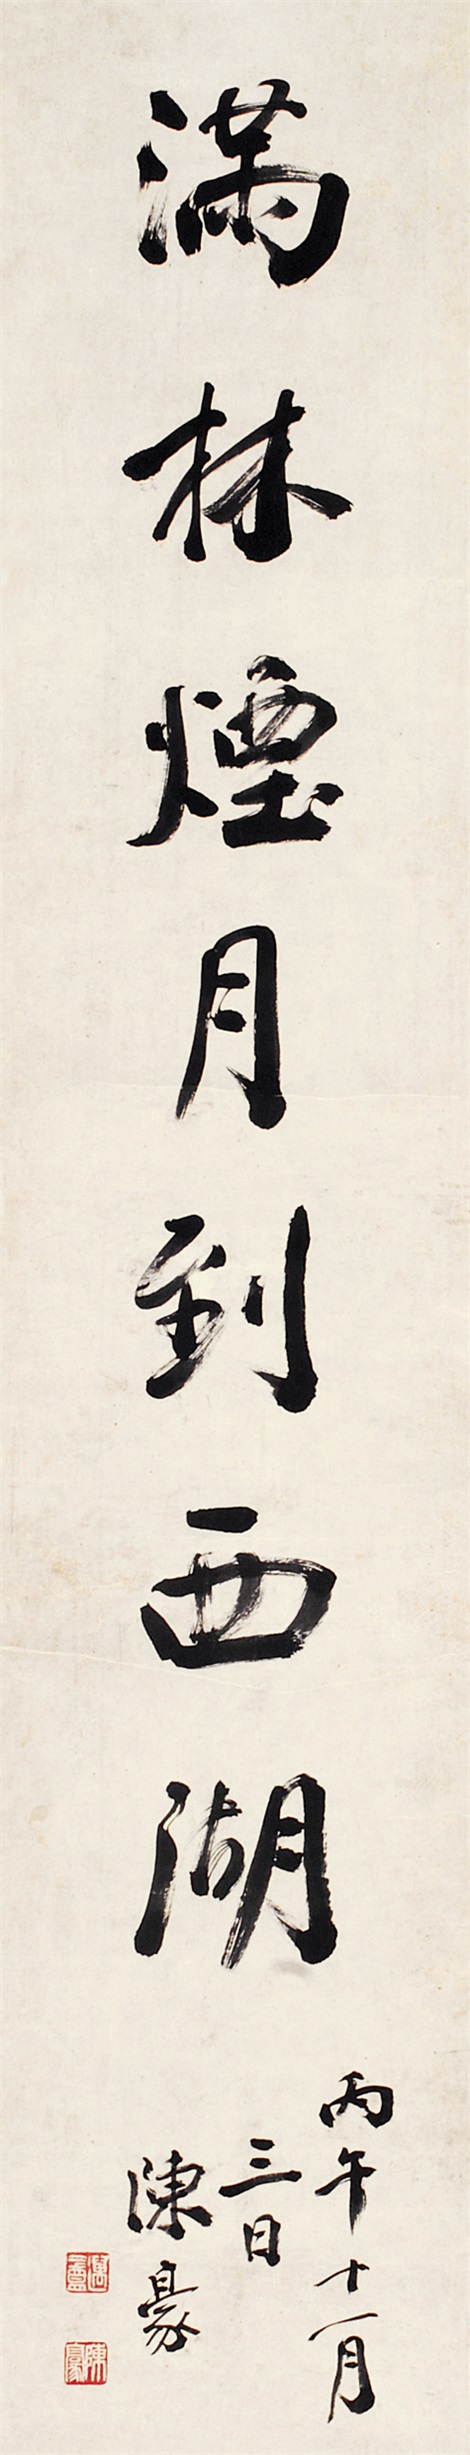 满林煙月到西湖
丙午十一月
三日
陳豪
陳豪